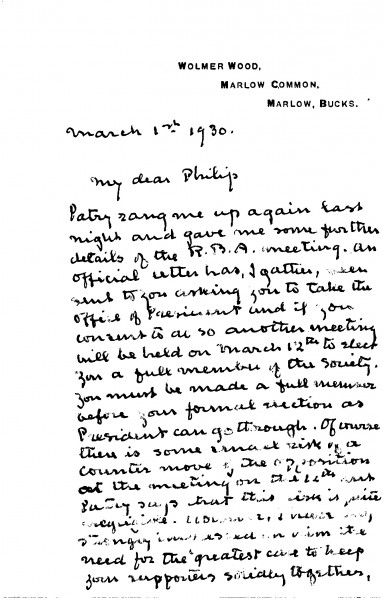 WOLMER WOOD,
MARLOW COMMON,
MARLOW, BUCKS.
March 1st 1930.
My dear Philip
Patry rang me up again last
night and gave me some further
details of the R.B.A. meeting. An
official letter has, I gather, been
sent to you asking you to take the
office of President and if you
consent to do so another meeting
will be held on March 12th to elect
you a full member of the Society.
You must be made a full member
before your formal election as
President can go through. Of course
there is some small risk of a
counter move of the opposition
at the meeting on the 12th but
Patry says that this risk is quite
negligible. However, I
strongly on him the
need for the greatest care to keep
your supporters solidly together,